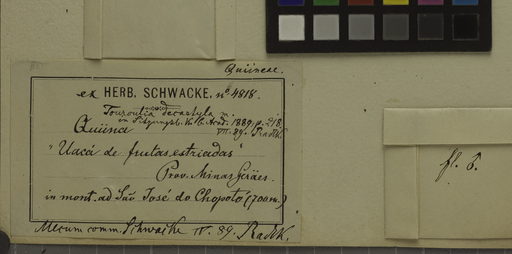 Quiineae.
ex HERB. SCHWACKE. nº 4818.
Touroulia decastyla m.
in Sitzungsb. K. b. Acad. 1889. p. 218
Quiina VII. 89. Radlk.
"Uacá de frutas estriadas"
Prov. Minas Geräes.
in mont. ad São José do Chopotó (700m.)
Mecum comm. Schwacke IV. 89. Radlk.
fl. 5.